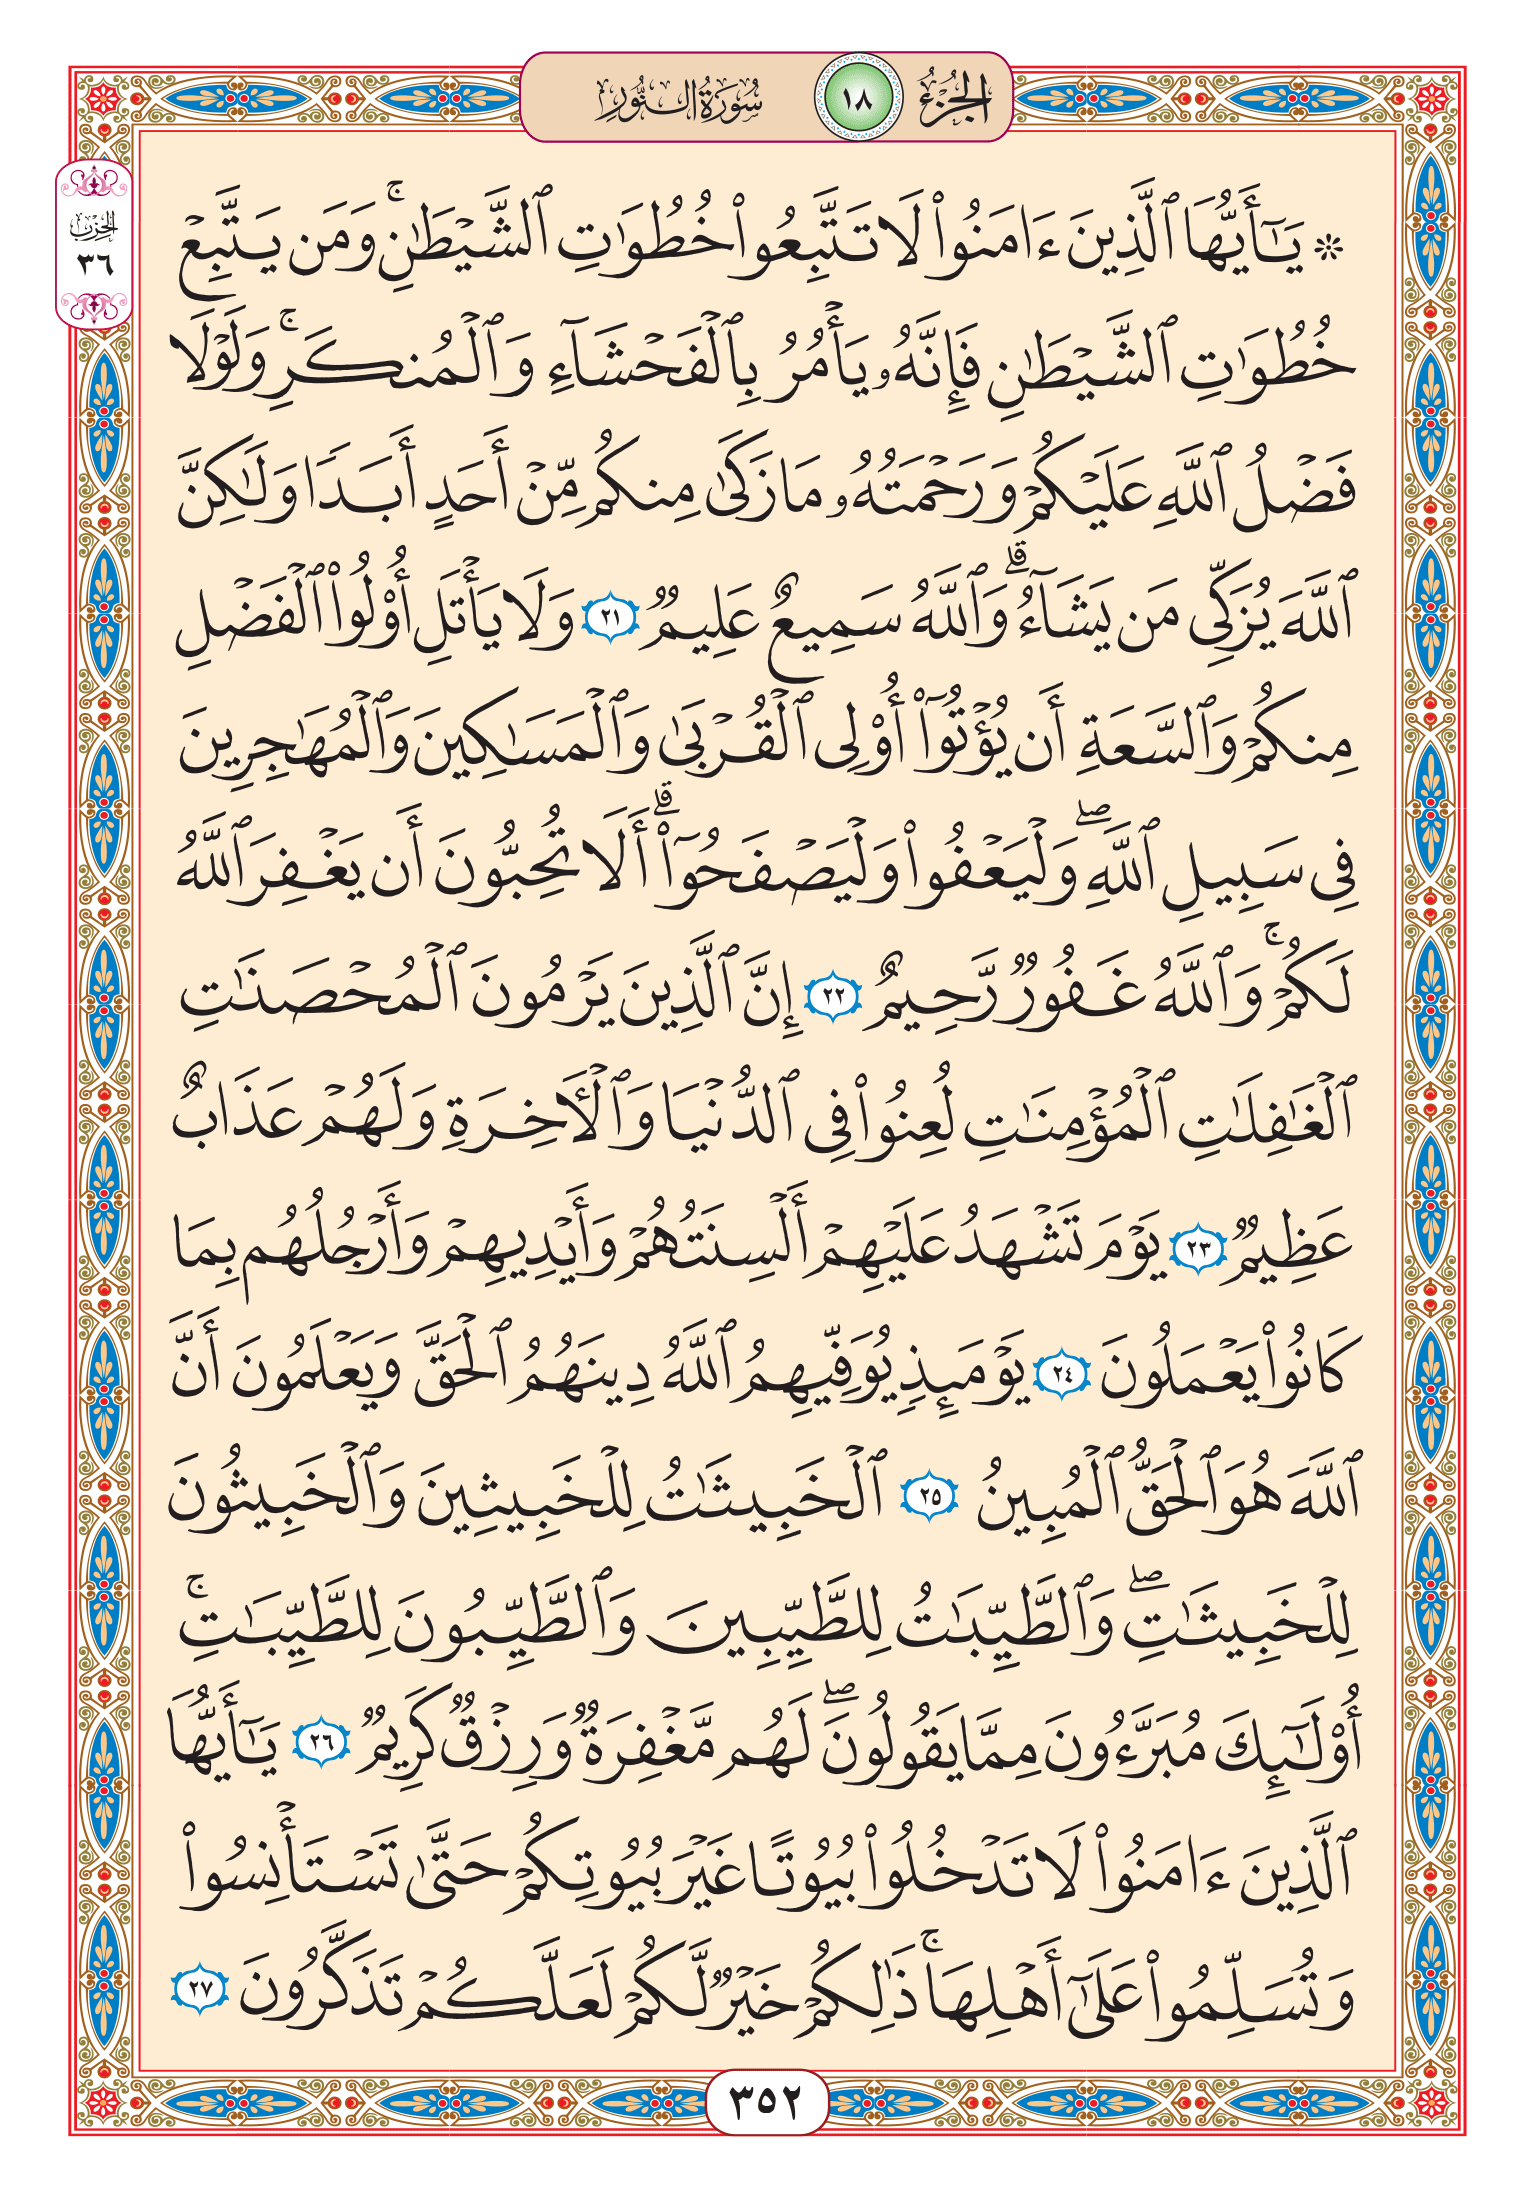 الجزء ١٨ سورة النور
الحزب
٣٦
۞ يَٰٓأَيُّهَا ٱلَّذِينَ ءَامَنُوا۟ لَا تَتَّبِعُوا۟ خُطُوَٰتِ ٱلشَّيْطَٰنِ ۚ وَمَن يَتَّبِعْ
خُطُوَٰتِ ٱلشَّيْطَٰنِ فَإِنَّهُۥ يَأْمُرُ بِٱلْفَحْشَآءِ وَٱلْمُنكَرِ ۚ وَلَوْلَا
فَضْلُ ٱللَّهِ عَلَيْكُمْ وَرَحْمَتُهُۥ مَا زَكَىٰ مِنكُم مِّنْ أَحَدٍ أَبَدًا وَلَٰكِنَّ
ٱللَّهَ يُزَكِّى مَن يَشَآءُ ۗ وَٱللَّهُ سَمِيعٌ عَلِيمٌ ٢١ وَلَا يَأْتَلِ أُو۟لُوا۟ ٱلْفَضْلِ
مِنكُمْ وَٱلسَّعَةِ أَن يُؤْتُوٓا۟ أُو۟لِى ٱلْقُرْبَىٰ وَٱلْمَسَٰكِينَ وَٱلْمُهَٰجِرِينَ
فِى سَبِيلِ ٱللَّهِ ۖ وَلْيَعْفُوا۟ وَلْيَصْفَحُوٓا۟ ۗ أَلَا تُحِبُّونَ أَن يَغْفِرَ ٱللَّهُ
لَكُمْ ۚ وَٱللَّهُ غَفُورٌ رَّحِيمٌ ٢٢ إِنَّ ٱلَّذِينَ يَرْمُونَ ٱلْمُحْصَنَٰتِ
ٱلْغَٰفِلَٰتِ ٱلْمُؤْمِنَٰتِ لُعِنُوا۟ فِى ٱلدُّنْيَا وَٱلْءَاخِرَةِ وَلَهُمْ عَذَابٌ
عَظِيمٌ ٢٣ يَوْمَ تَشْهَدُ عَلَيْهِمْ أَلْسِنَتُهُمْ وَأَيْدِيهِمْ وَأَرْجُلُهُم بِمَا
كَانُوا۟ يَعْمَلُونَ ٢٤ يَوْمَئِذٍ يُوَفِّيهِمُ ٱللَّهُ دِينَهُمُ ٱلْحَقَّ وَيَعْلَمُونَ أَنَّ
ٱللَّهَ هُوَ ٱلْحَقُّ ٱلْمُبِينُ ٢٥ ٱلْخَبِيثَٰتُ لِلْخَبِيثِينَ وَٱلْخَبِيثُونَ
لِلْخَبِيثَٰتِ ۖ وَٱلطَّيِّبَٰتُ لِلطَّيِّبِينَ وَٱلطَّيِّبُونَ لِلطَّيِّبَٰتِ ۚ
أُو۟لَٰٓئِكَ مُبَرَّءُونَ مِمَّا يَقُولُونَ ۖ لَهُم مَّغْفِرَةٌ وَرِزْقٌ كَرِيمٌ ٢٦ يَٰٓأَيُّهَا
ٱلَّذِينَ ءَامَنُوا۟ لَا تَدْخُلُوا۟ بُيُوتًا غَيْرَ بُيُوتِكُمْ حَتَّىٰ تَسْتَأْنِسُوا۟
وَتُسَلِّمُوا۟ عَلَىٰٓ أَهْلِهَا ۚ ذَٰلِكُمْ خَيْرٌ لَّكُمْ لَعَلَّكُمْ تَذَكَّرُونَ ٢٧
٣٥٢